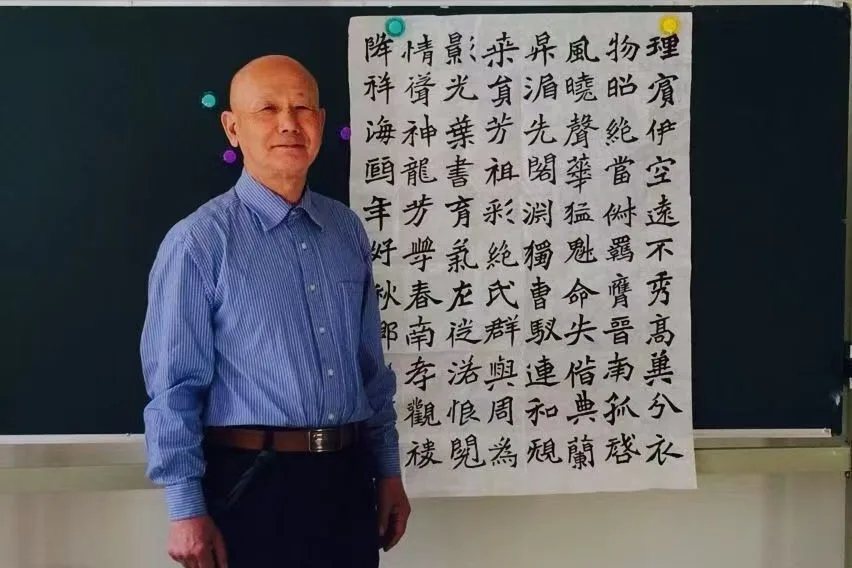 理賓伊空遠不秀高兮衣
物昭絶當羈膺晉南孤啓
風曉聲華猛魁命失偕典蘭
昇湄先閣淵獨曹馭連和
来貟芳祖彩絶氏群與周為
影光葉書育氣左從恨閱
情聳神龍芳學春南孝觀
降祥海画年好秋